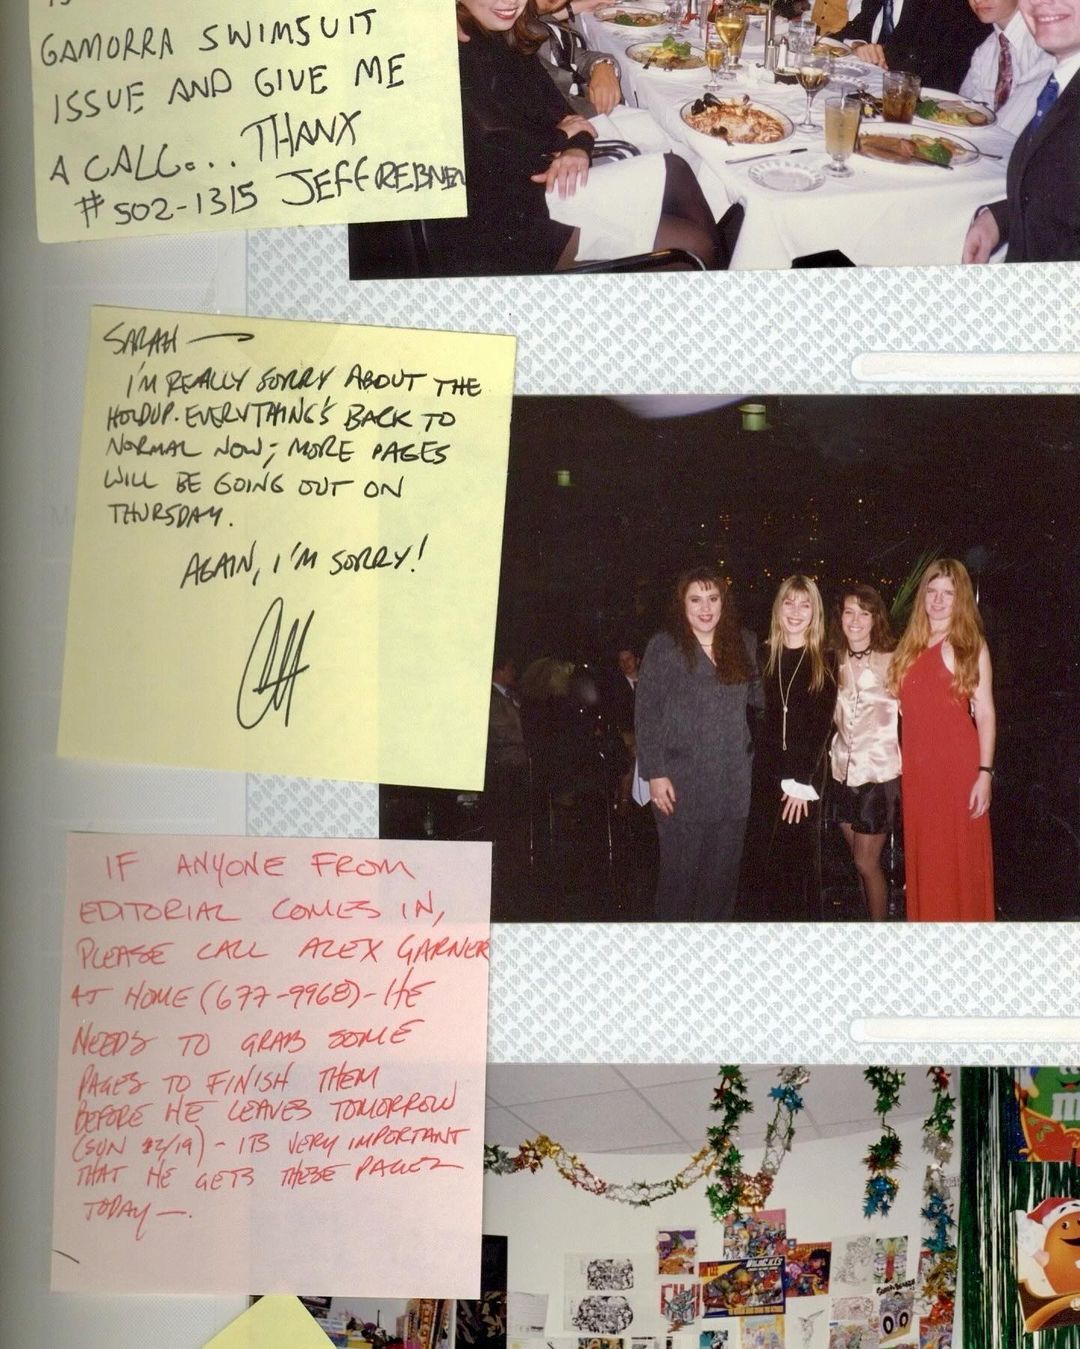 GAMORRA SWIMSUIT
ISSUE AND GIVE ME
A CALL... THANX
#502-1315 JEFF REBNER
SARAH —
I'M REALLY SORRY ABOUT THE
HOLDUP. EVERYTHING'S BACK TO
NORMAL NOW; MORE PAGES
WILL BE GOING OUT ON
THURSDAY.
AGAIN, I'M SORRY!
IF ANYONE FROM
EDITORIAL COMES IN,
PLEASE CALL ALEX GARNER
AT HOME (677-9968) - HE
NEEDS TO GRAB SOME
PAGES TO FINISH THEM
BEFORE HE LEAVES TOMORROW
(SUN 2/19) - ITS VERY IMPORTANT
THAT HE GETS THESE PAGES
TODAY —.
WILDC.A.T.S